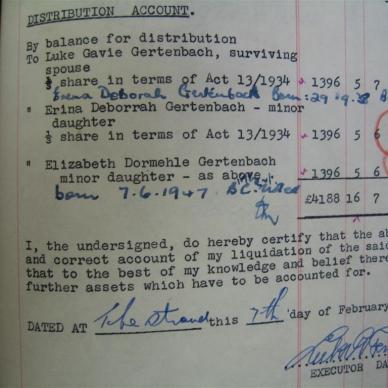 DISTRIBUTION ACCOUNT.
By balance for distribution
To Luke Gavie Gertenbach, surviving
spouse
⅓ share in terms of Act 13/1934 1396 5 7
Erina Deborah Gertenbach Born: 29.9.
" Erina Deborrah Gertenbach - minor
daughter
⅓ share in terms of Act 13/1934 1396 5 6
" Elizabeth Dormehle Gertenbach
minor daughter - as above. 1396 5 6
born 7.6.1947
£4188 16 7
I, the undersigned, do hereby certify that the ab
and correct account of my liquidation of the said
that to the best of my knowledge and belief there
further assets which have to be accounted for.
DATED AT The Strand this 7th day of February
EXECUTOR DA